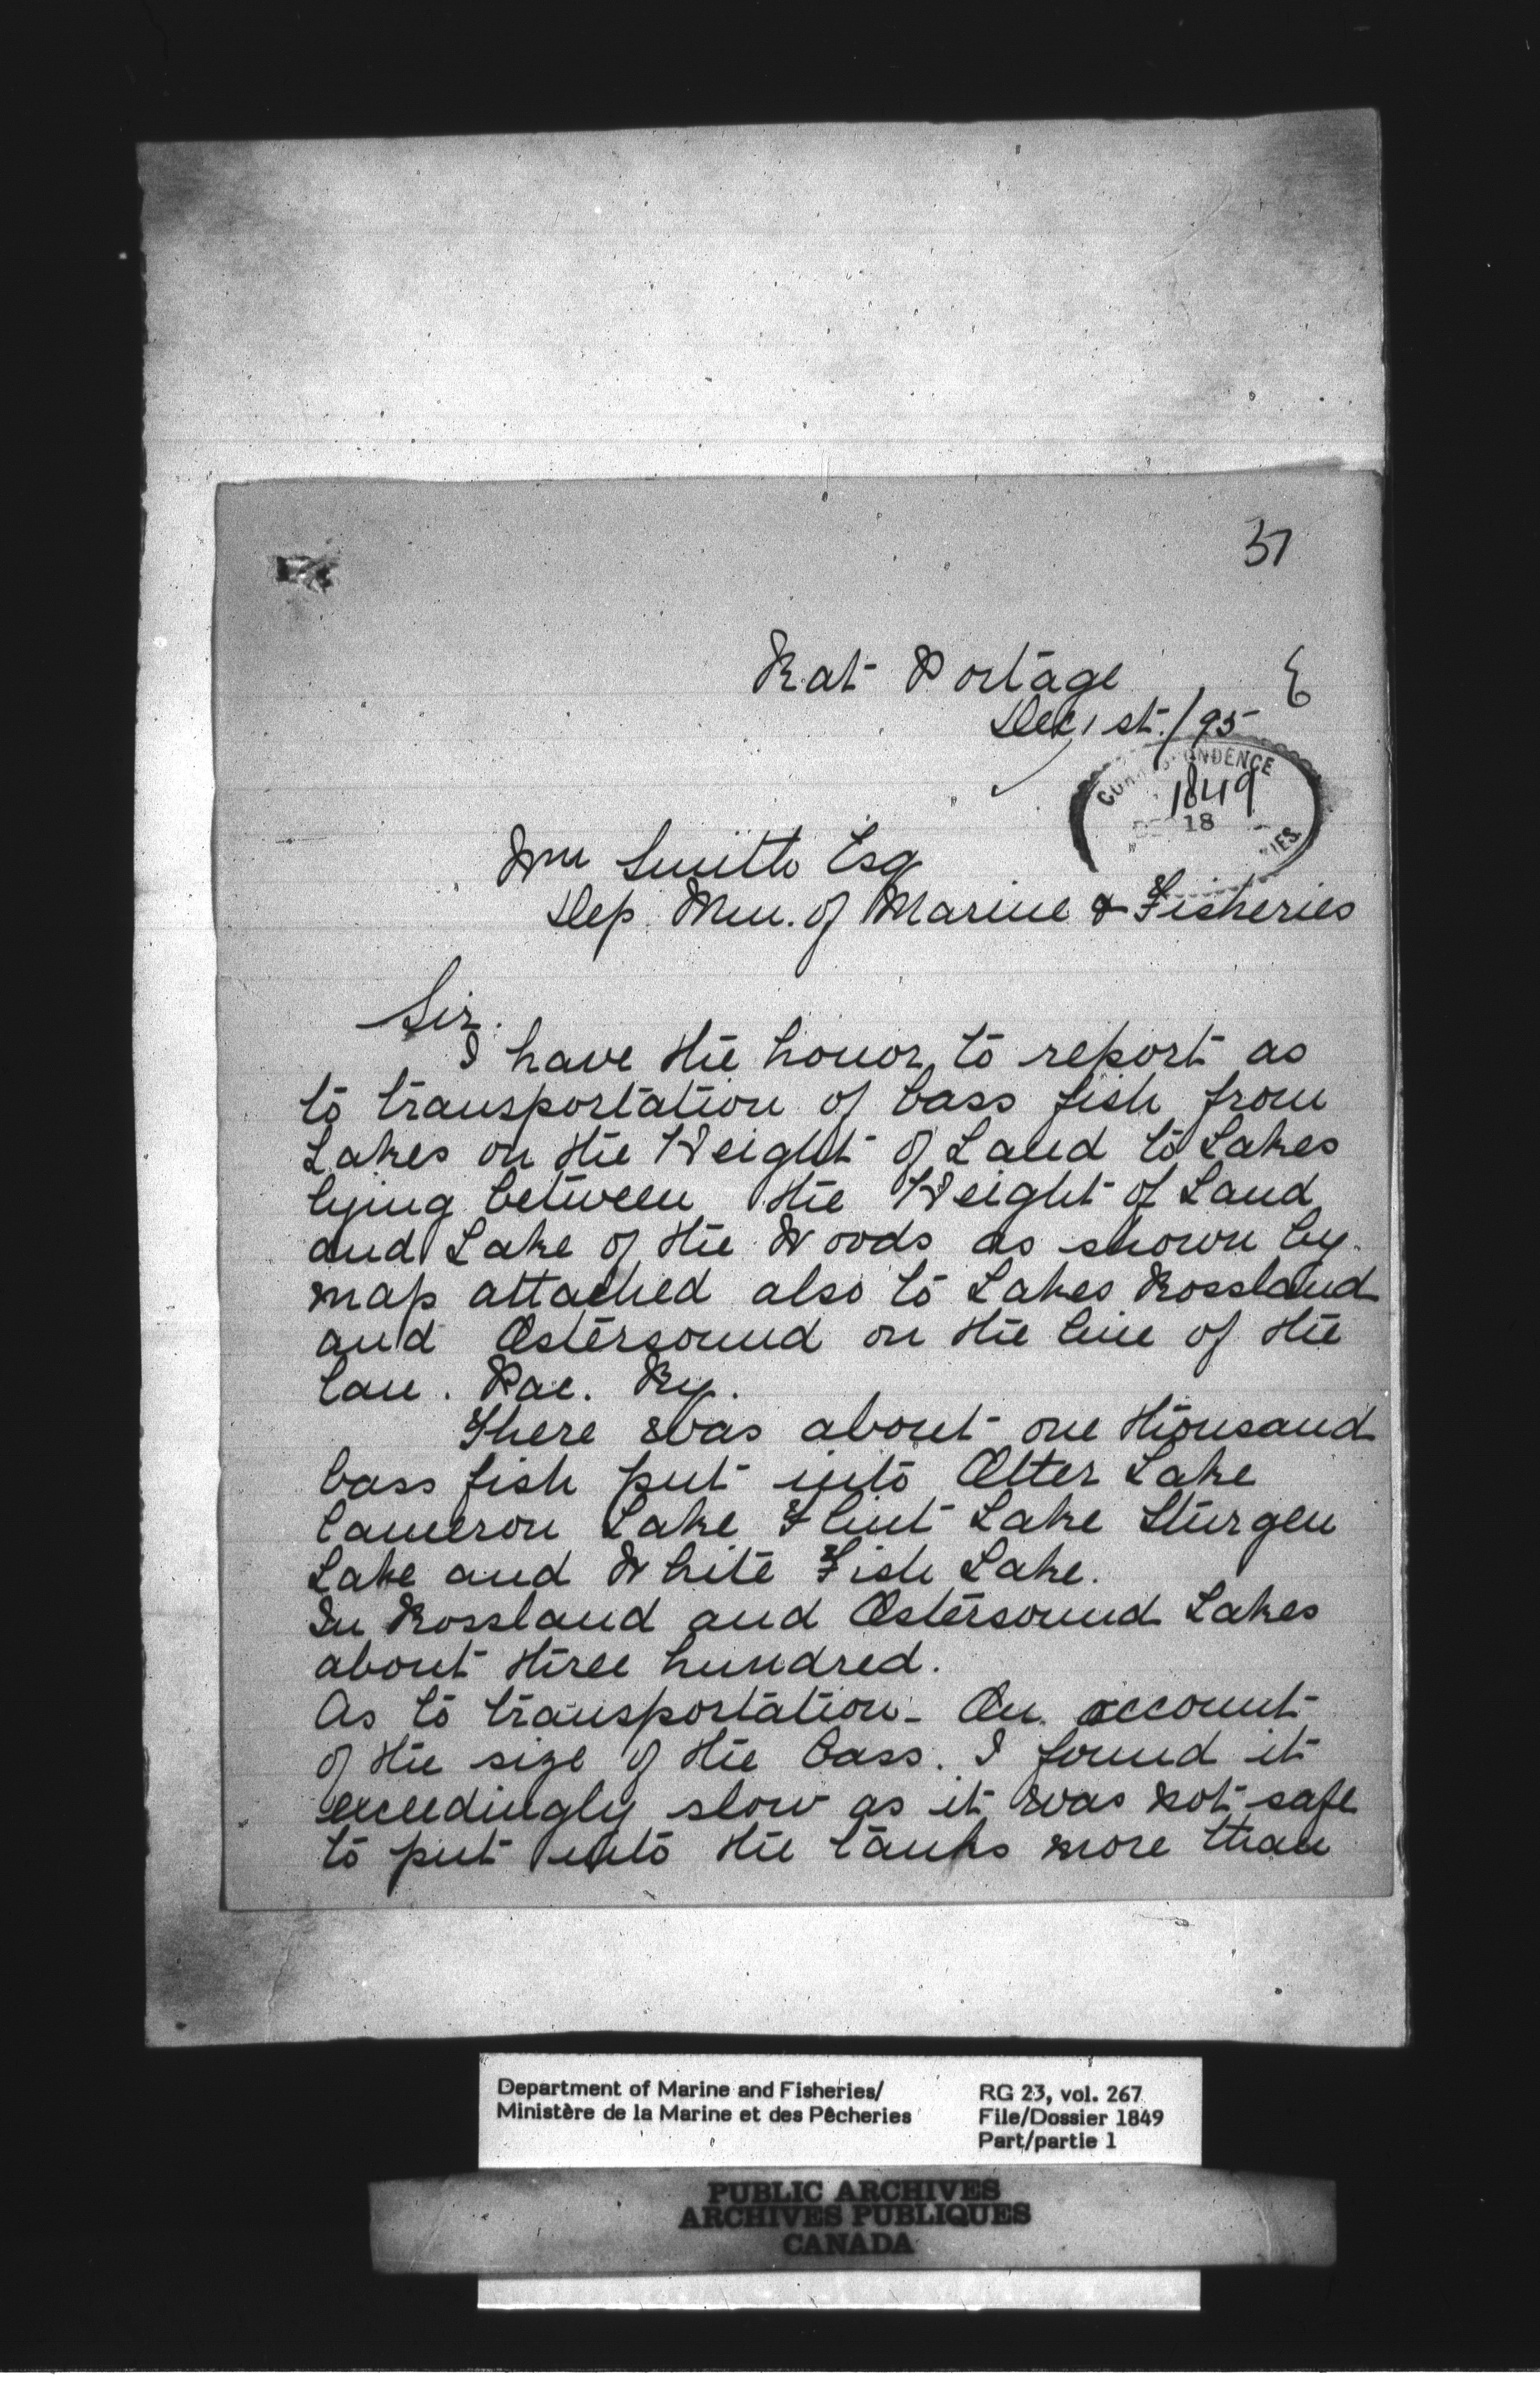 37
Rat Portage
Dec 1st./95
CORRESPONDENCE
1849
18
IES.
Wm Smith Esq
Dep. Min. of Marine & Fisheries
Sir.
I have the honor to report as
to transportation of bass fish from
Lakes on the Height of Land to Lakes
lying between the Height of Land
and Lake of the Woods as shown by
map attached also to Lakes Rossland
and Ostersound on the line of the
Can. Pac. Ry.
There was about one thousand
bass fish put into Otter Lake
Cameron Lake Flint Lake Sturgen
Lake and White Fish Lake.
In Rossland and Ostersound Lakes
about three hundred.
As to transportation - On account
of the size of the bass. I found it
exceedingly slow as it was not safe
to put into the tanks more than
Department of Marine and Fisheries/
Ministère de la Marine et des Pêcheries
RG 23, vol. 267
File/Dossier 1849
Part/partie 1
PUBLIC ARCHIVES
ARCHIVES PUBLIQUES
CANADA